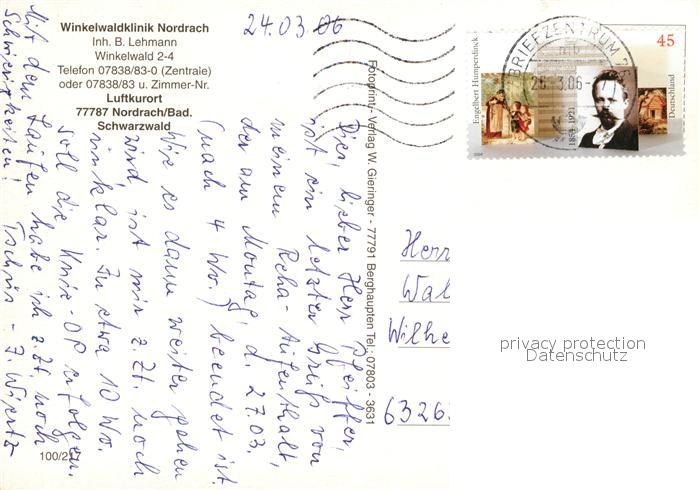 Winkelwaldklinik Nordrach
Inh. B. Lehmann
Winkelwald 2-4
Telefon 07838/83-0 (Zentrale)
oder 07838/83 u. Zimmer-Nr.
Luftkurort
77787 Nordrach/Bad.
Schwarzwald
24.03.06
Dies, lieber Herr Pfeiffer,
ist ein letzter Gruß von
meinem Reha-Aufenthalt,
der am Montag d. 27.03.
(nach 4 Wo.) beendet ist.
Wie es dann weiter gehen
wird, ist mir z.Zt. noch
unklar. In etwa 10 Wo.
soll die Knie-OP erfolgen.
Mit dem Laufen habe ich z.Zt. noch
Schwierigkeiten! Tschüs - J. Wiertz
Fotoprint-Verlag W. Gieringer - 77791 Berghaupten Tel.: 07803 - 3631
100/217
BRIEFZENTRUM
Engelbert Humperdinck
1854-1921
45
Deutschland
Herr
Wal
Wilhe
6326
privacy protection
Datenschutz